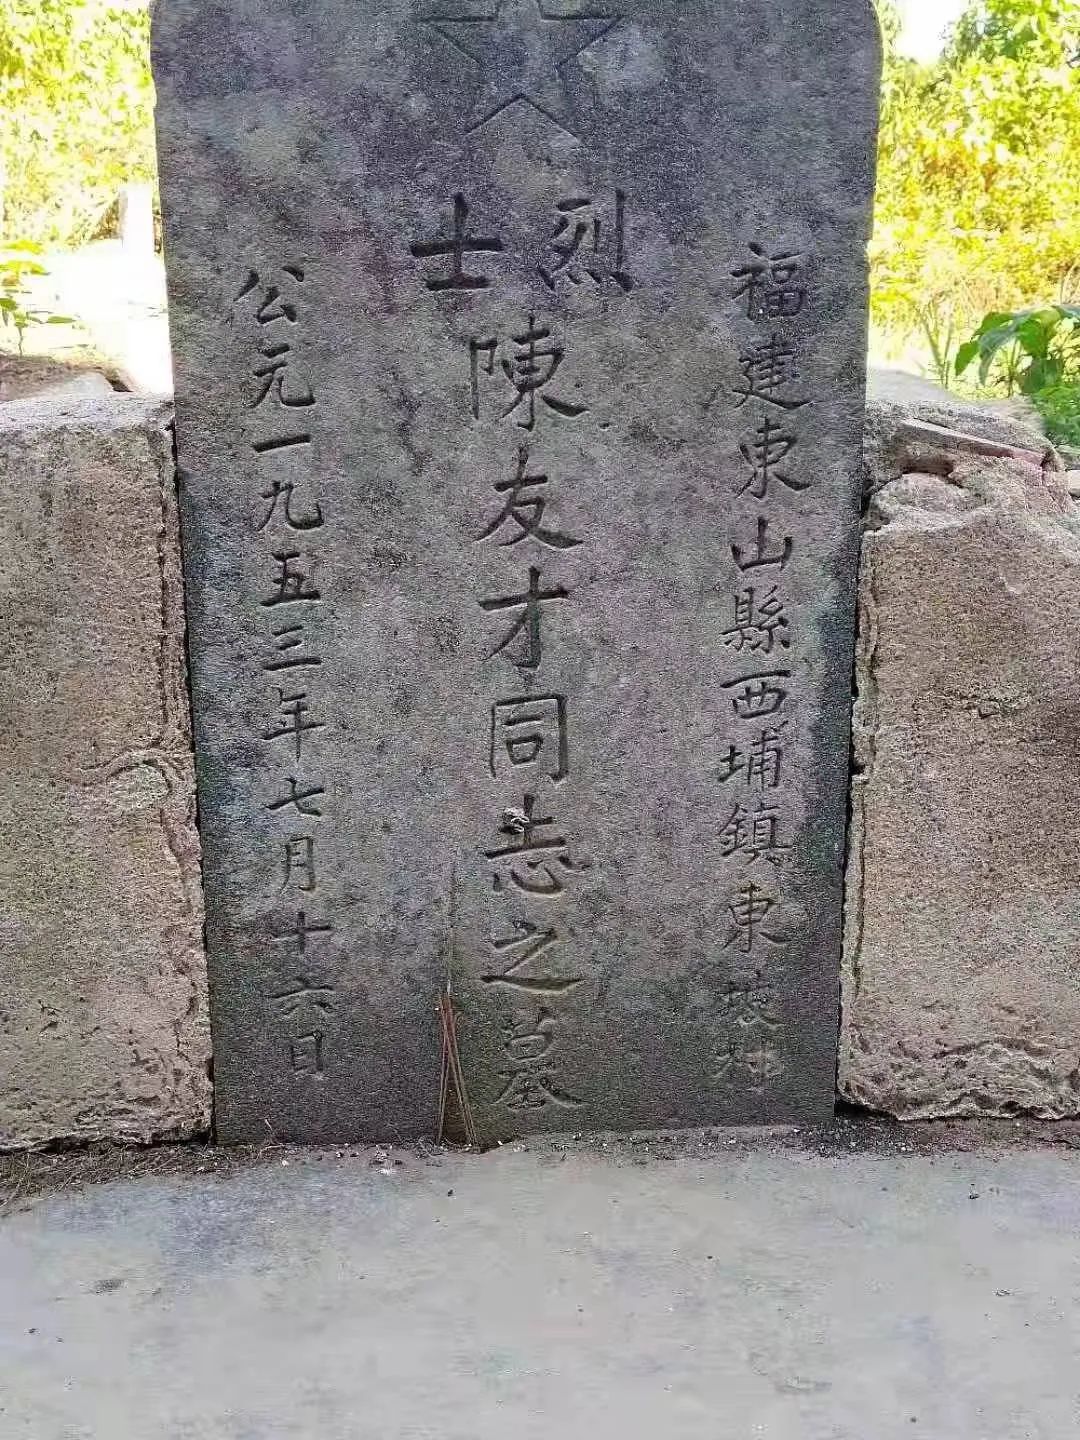 福建東山縣西埔鎮東坡村
烈士
陳友才同志之墓
公元一九五三年七月十六日